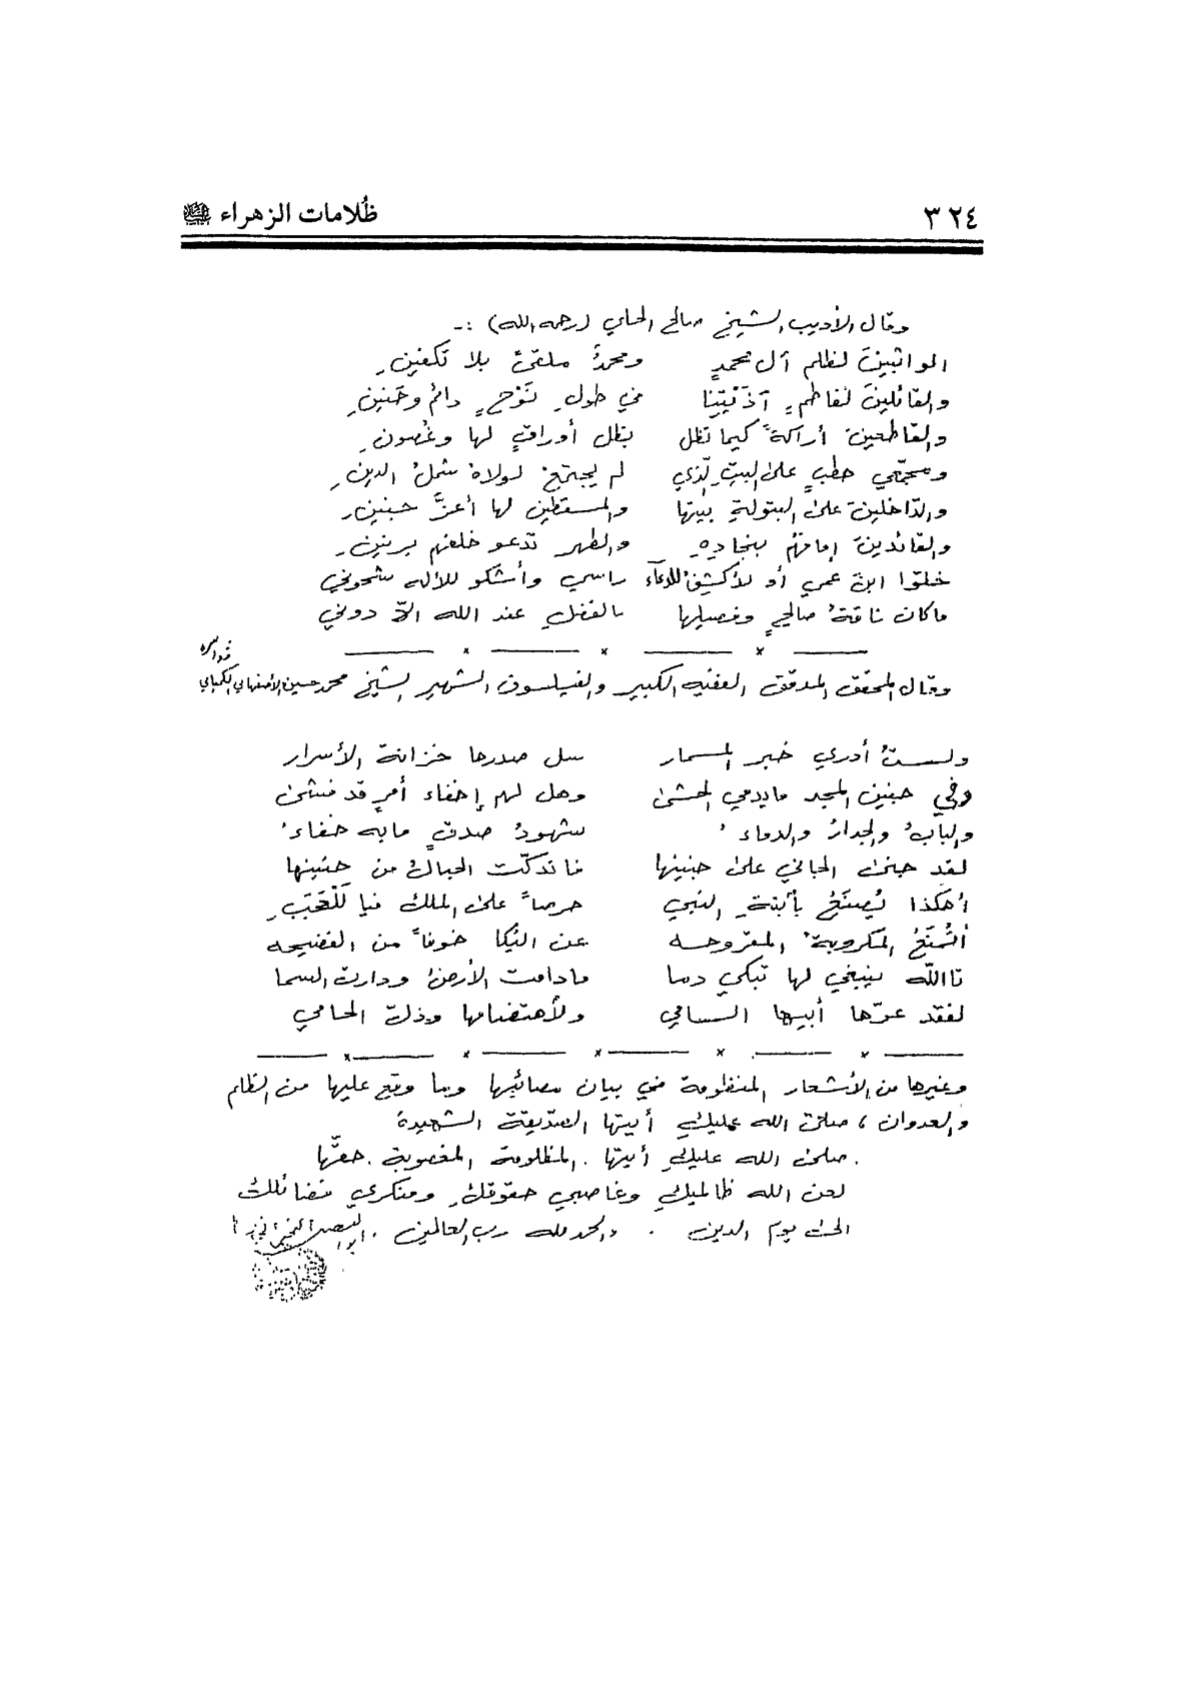 ٣٢٤ ظُلامات الزهراء
وقال الأديب الشيخ صالح الحلي (رحمه الله) :-
الواثبينَ لظلم آل محمدٍ ومحمدٌ ملقىً بلا تكفينِ
والقائلينَ لفاطمٍ آذَيْتِنا في طولِ نَوْحٍ دائمٍ وحَنينِ
والقاطعينَ أراكةً كيما تظل بظل أوراقٍ لها وغُصونِ
ومجمّعي حطبٍ على البيتِ الّذي لم يجتمعْ لولاهُ شملُ الدينِ
والدّاخلينَ على البتولةِ بيتها والمسقطين لها أعزَّ جنينِ
والقائدينَ إمامَهُم بنجادِهِ والطهر تدعو خلفهم برنينِ
خلّوا ابنَ عمي أو لأكشِفُ للدعاء راسي وأشكو للآله شجوني
ماكان ناقةُ صالحٍ وفصيلها بالفضلِ عند الله الاّ دوني
وقال المحقق المدقّق الفقيه الكبير والفيلسوف الشهير الشيخ محمد حسين الأصفهاني الكمپاني
ولستُ أدري خبر المسمار سل صدرها خزانة الأسرار
وفي جنين المجد مايدمي الحشى وهل لهم إخفاء أمرٍ قد فشى
والبابُ والجدارُ والدماءُ شهودُ صدقٍ مابه خفاءُ
لقد جنى الجاني على جنينها فاندكّت الجبال من حنينها
أهكذا يُصنَعُ بأبنةِ النبي حرصاً على الملك فيا لَلْعَجَبِ
أتُمنَعُ المكروبةُ المقروحه عن البُكا خوفاً من الفضيحه
تاالله ينبغي لها تبكي دما مادامت الأرضُ ودارت السما
لفقد عزّها أبيها السامي ولأهتضامها وذلّ الحامي
وغيرها من الأشعار المنظومة في بيان مصائبها وما وقع عليها من الظلم
والعدوان ، صلى الله عليكِ أيتها الصديقة الشهيدة
. صلى الله عليكِ أيتها المظلومة المغصوبة حقّها
لعن الله ظالميكِ وغاصبي حقوقكِ ومنكري فضائلك
الى يوم الدين . والحمد لله رب العالمين .